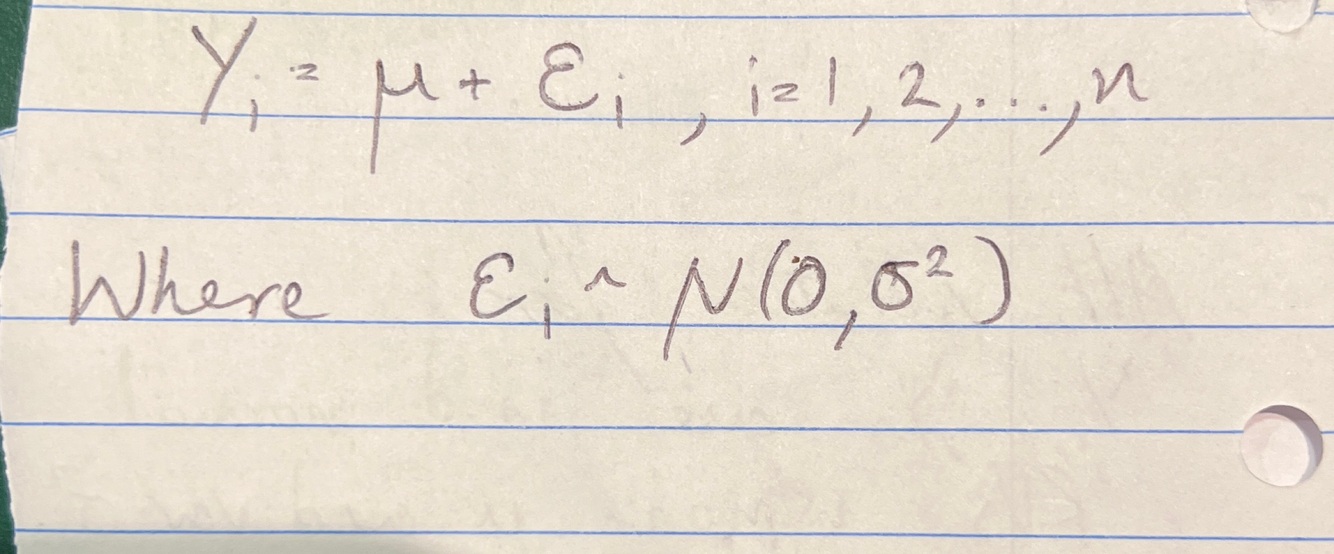 Yᵢ = μ + εᵢ , i=1, 2,...,n
Where εᵢ ~ N(0,σ²)